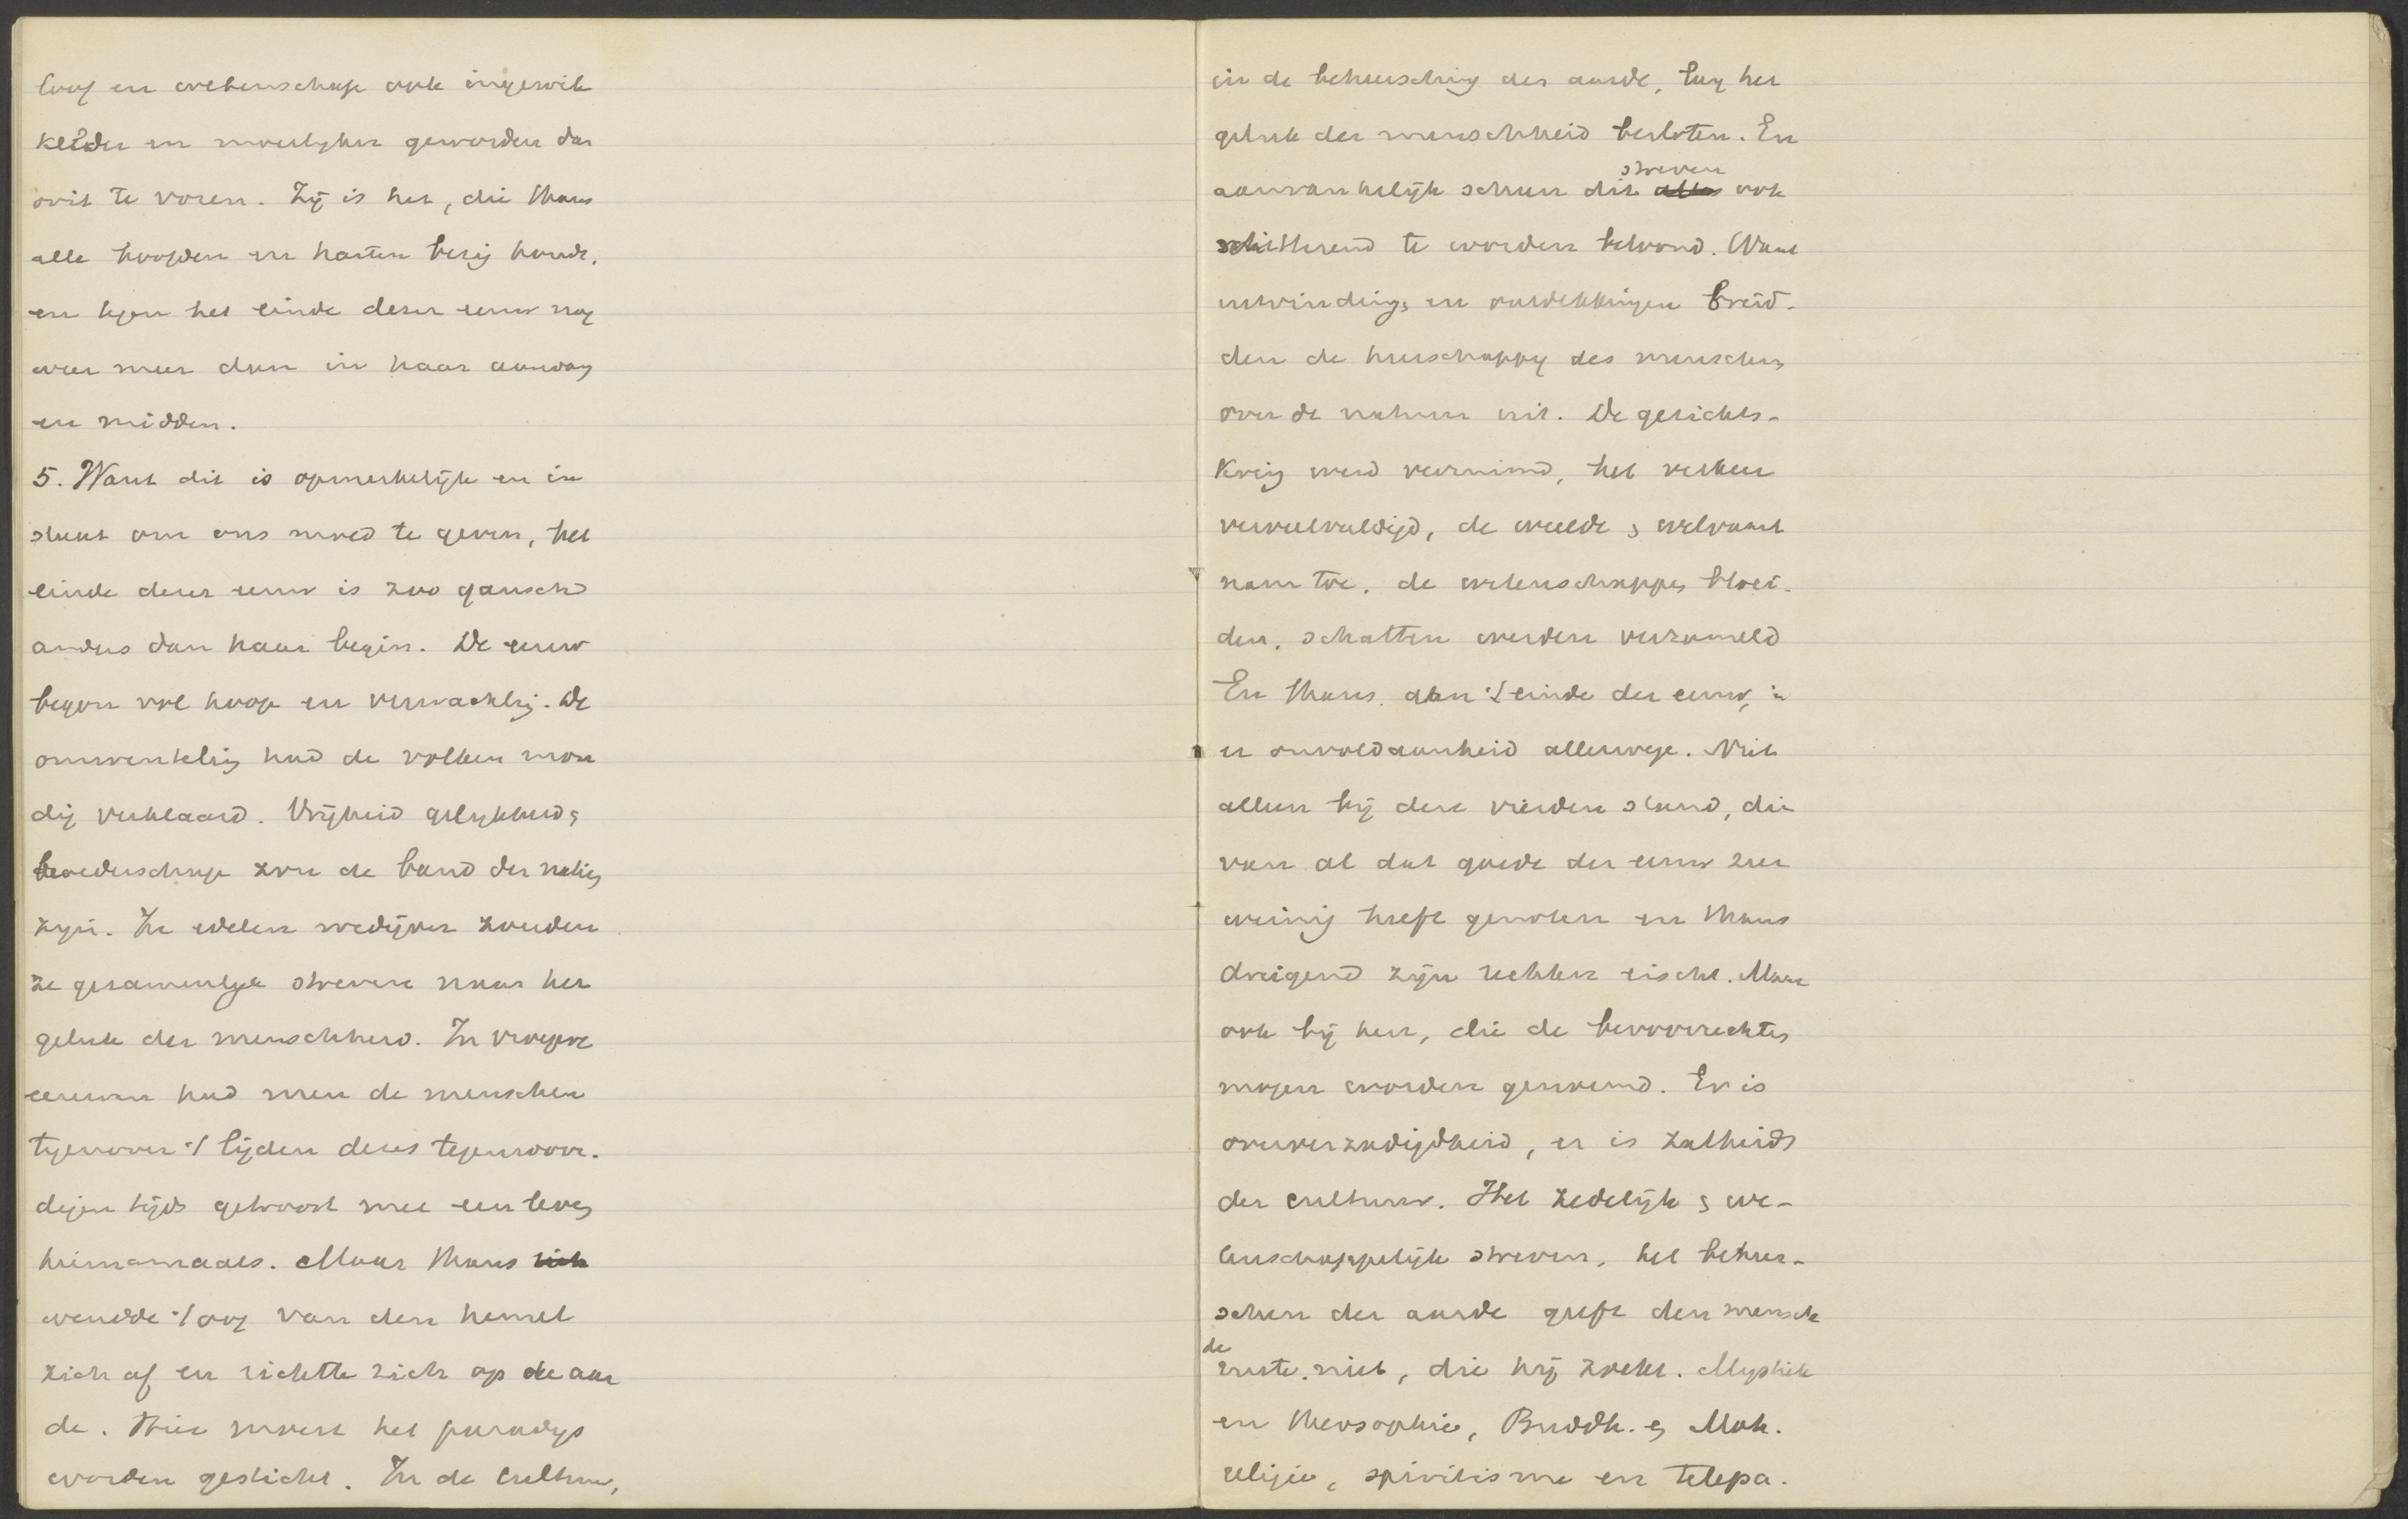 loof en wetenschap ook ingewik
kelder en moeilyker geworden dan
ooit te voren. Zij is het, die thans
alle hoofden en harten bezig houdt,
en tegen het einde dezer eeuw nog
weer meer dan in haar aanvang
en midden.
5. Want dit is opmerkelijk en in
staat om ons moed te geven, het
einde dezer eeuw is zoo gansch
anders dan haar begin. De eeuw
begon vol hoop en verwachting. De
omwenteling had de volken mon
dig verklaard. Vrijheid gelykheid &
broederschap zou de band der natiën
zyn. In edelen wedijver zouden
ze gezamenlyk streven naar het
geluk der menschheid. In vroegere
eeuwen had men de menschen
tegenover 't lijden dezes tegenwoor-
digen tijds getroost met een leven
hiernamaals. Maar thans zich
wendde 't oog van den hemel
zich af en richtte zich op de aar
de. Hier moest het paradys
worden gesticht. In de cultuur,
in de beheersching der aarde, lag het
geluk der menschheid besloten. En
streven
aanvankelijk scheen dit alles ook
schitterend te worden beloond. Want
uitvinding, en ontdekkingen breid-
den de heerschappy des menschen
over de natuur uit. De gezichts-
kring werd verruimd, het verkeer
verveelvuldigd, de weelde & welvaart
nam toe, de wetenschappen bloei-
den, schatten werden verzameld
En thans, aan 't einde der eeuw, is
er onvoldaanheid allerwege. Niet
alleen bij den vierden stand, die
van al dat goede der eeuw zeer
weinig heeft genoten en thans
dreigend zijn rechten eischt. Maar
ook bij hen, die de bevoorrechten
mogen worden genoemd. Er is
oververzadigdheid, er is zatheid
der cultuur. Het zedelijk & we-
tenschappelijk streven, het beheer-
schen der aarde geeft den mensch
de
ruste niet, die hij zoekt. Mystiek
en theosophie, Buddh. en Moh.
religie, spiritisme en telepa-